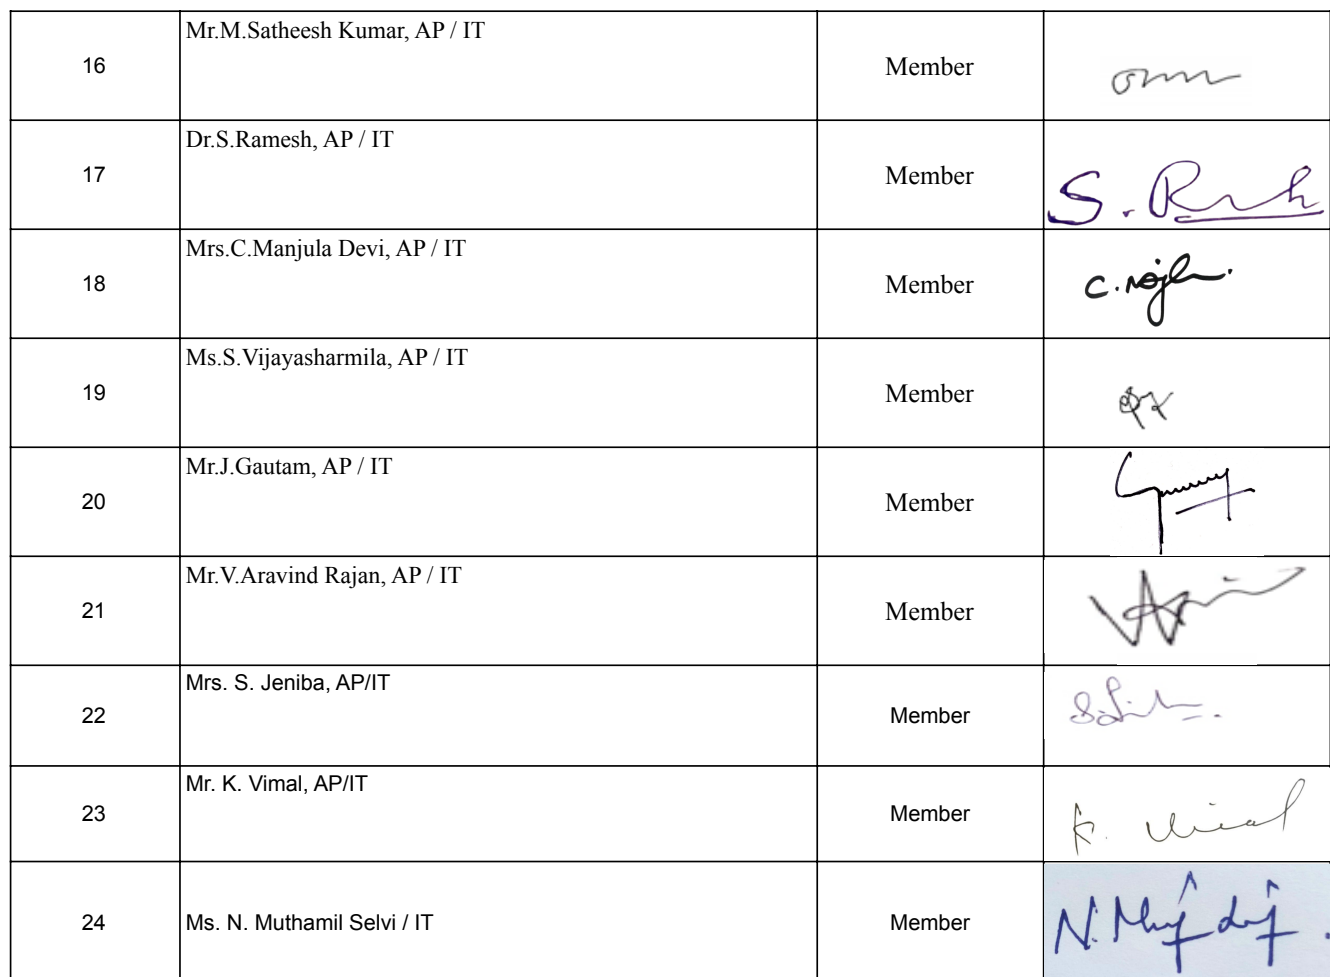 16 Mr.M.Satheesh Kumar, AP / IT Member
17 Dr.S.Ramesh, AP / IT Member S. R
18 Mrs.C.Manjula Devi, AP / IT Member C.
19 Ms.S.Vijayasharmila, AP / IT Member
20 Mr.J.Gautam, AP / IT Member
21 Mr.V.Aravind Rajan, AP / IT Member
22 Mrs. S. Jeniba, AP/IT Member
23 Mr. K. Vimal, AP/IT Member K. Vimal
24 Ms. N. Muthamil Selvi / IT Member N.